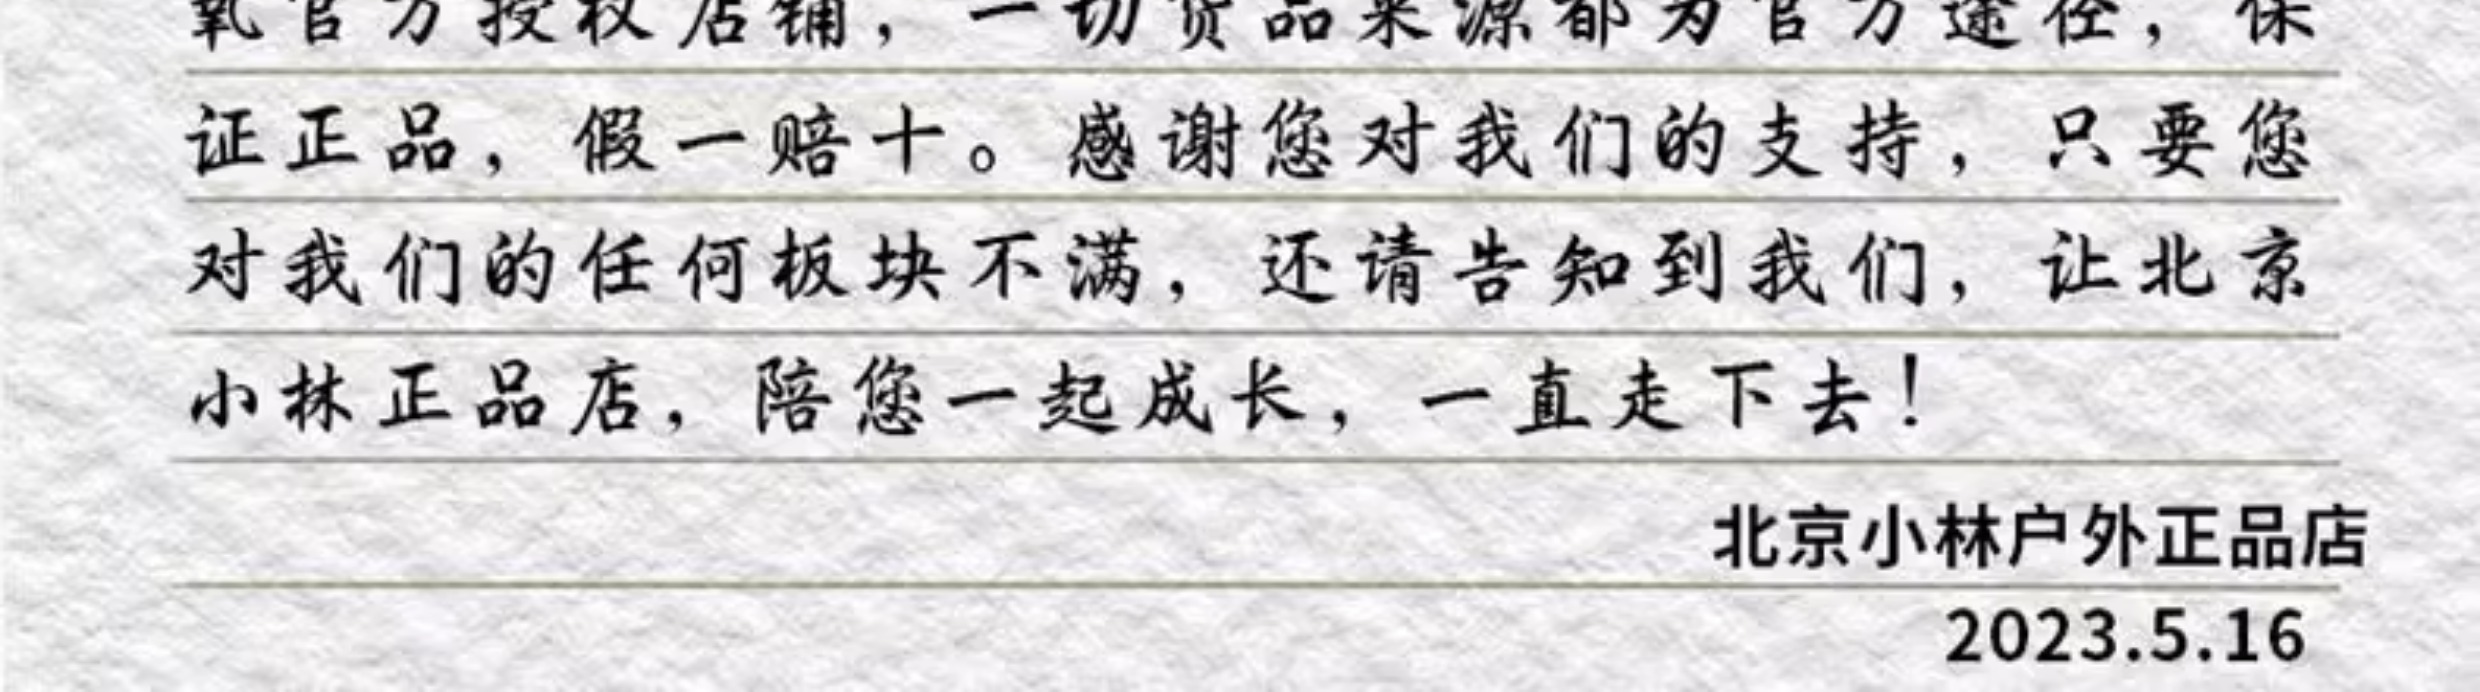 氧官方授权店铺，一切货品来源都为官方途径，保
证正品，假一赔十。感谢您对我们的支持，只要您
对我们的任何板块不满，还请告知到我们，让北京
小林正品店，陪您一起成长，一直走下去！
北京小林户外正品店
2023.5.16